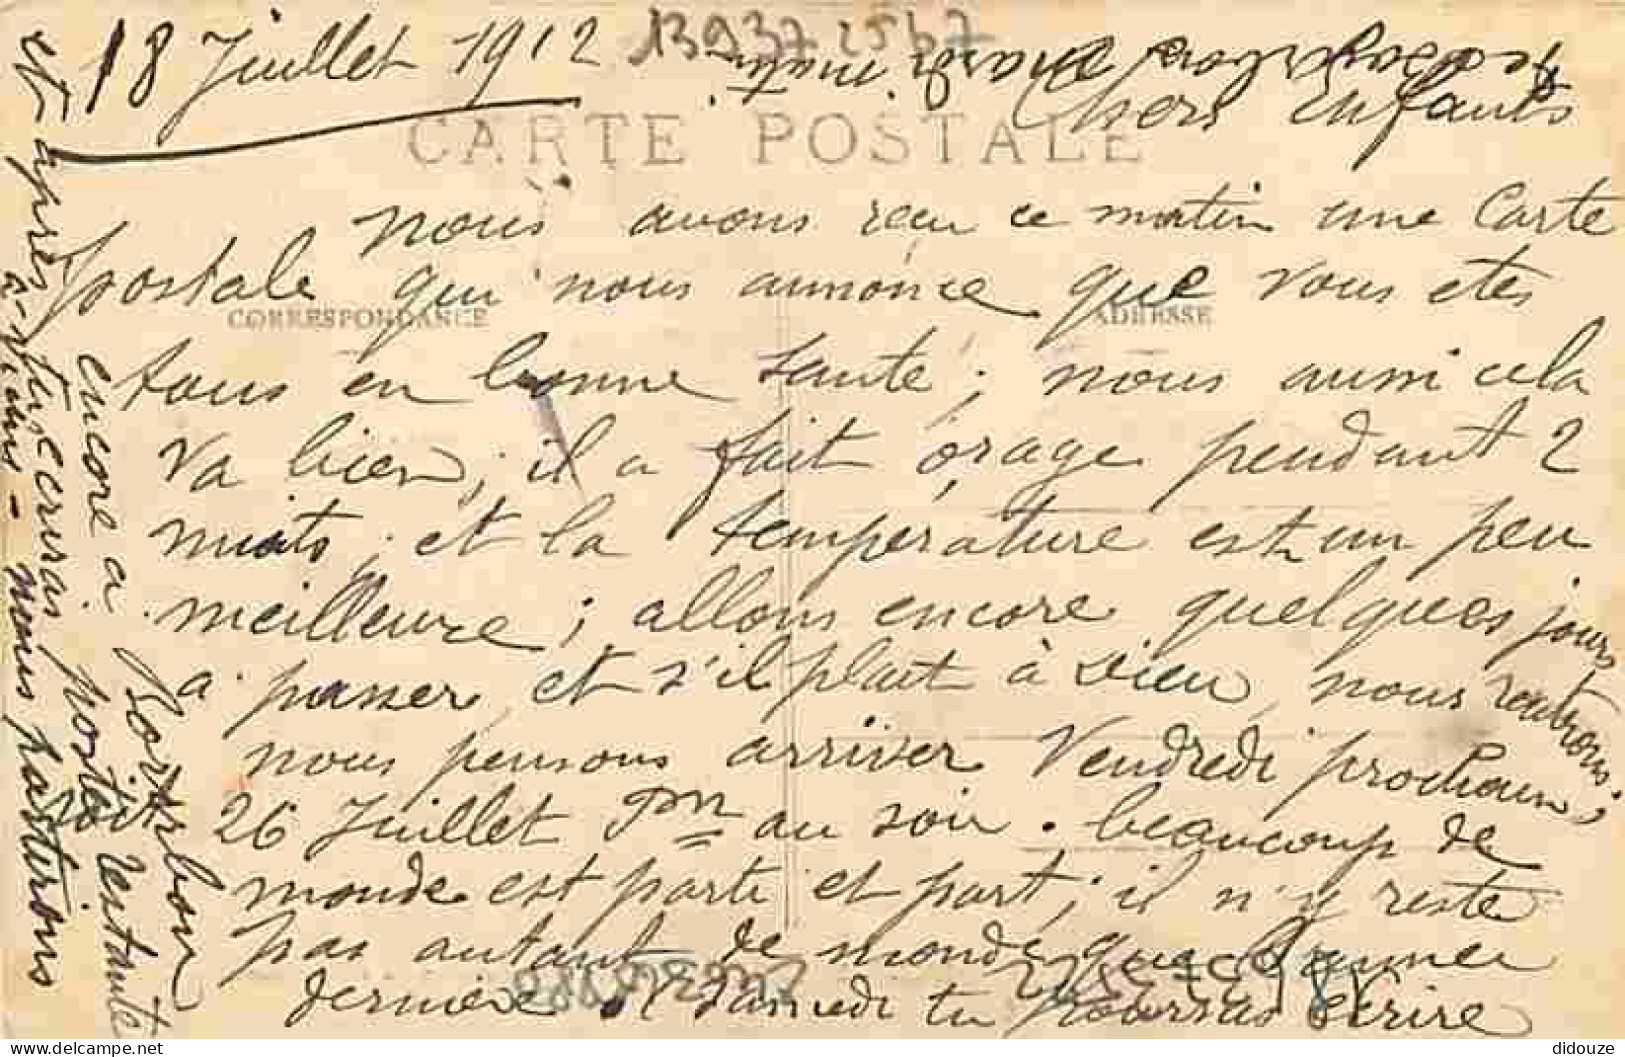 18 Juillet 1912
13937 2567
CARTE POSTALE
Chers enfants
nous avons reçu ce matin une Carte
postale qui nous annonce que vous etes
CORRESPONDANCE
ADRESSE
tous en bonne santé ; nous aussi cela
va bien, il a fait orage pendant 2
nuits ; et la température est un peu
meilleure ; allons encore quelques jours
a passer, et s'il plait à dieu, nous rentrons ;
nous pensons arriver Vendredi prochain,
26 Juillet au soir. beaucoup de
monde est parti et part ; il n'y reste
pas autant de monde que l'année
dernière et samedi tu pourras écrire
encore a Port-Arbon
poste restante
et après tu écrivais
nous partirons
didouze